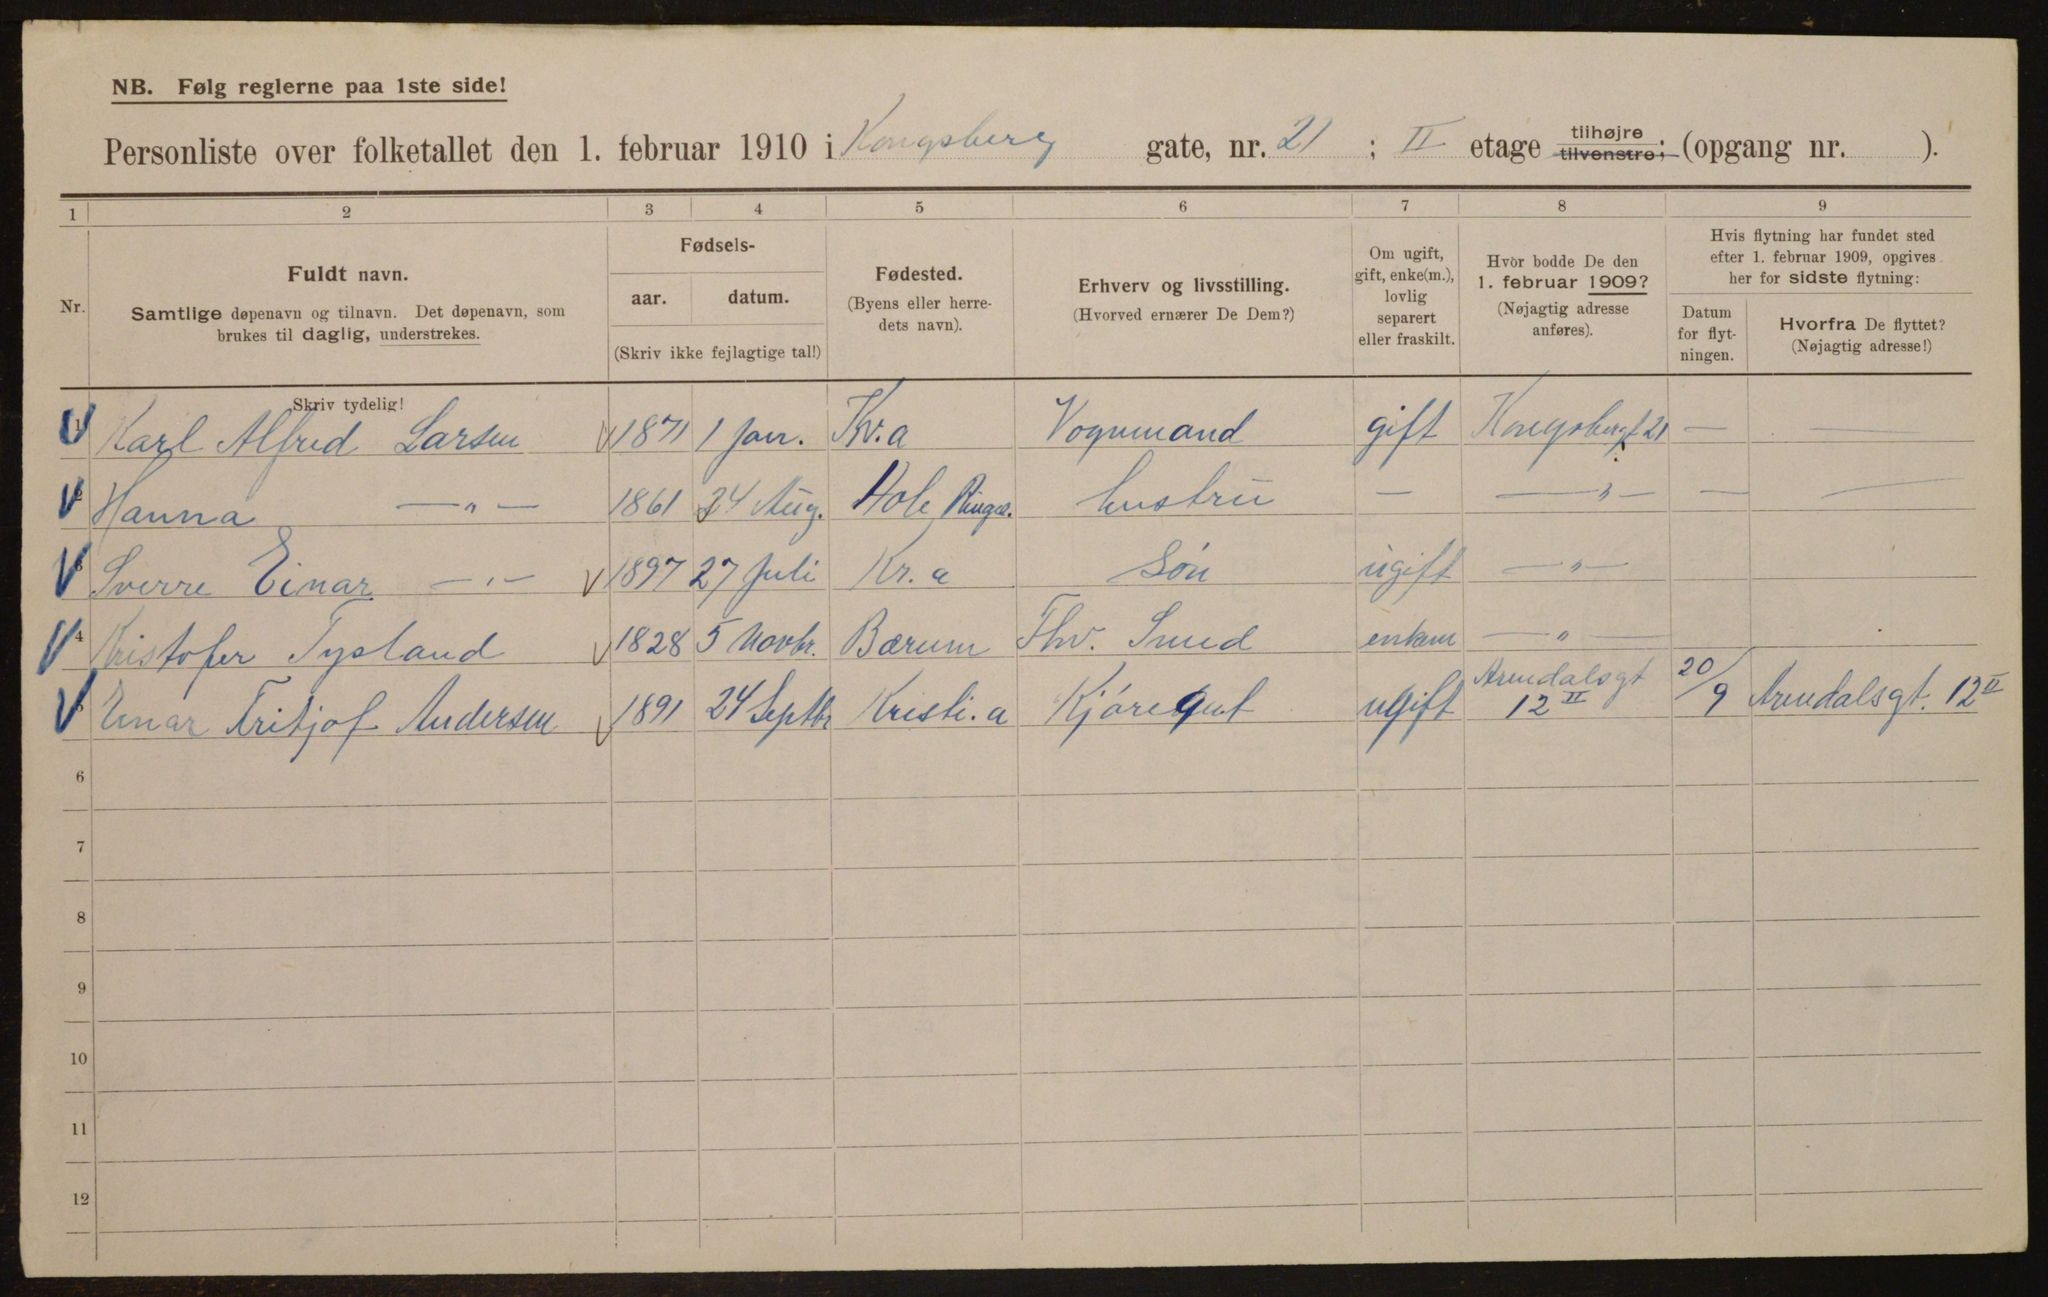 NB. Følg reglerne paa 1ste side!
Personliste over folketallet den 1. februar 1910 i Kongsberg gate, nr. 21 ; II etage tilhøjre tilvenstre; (opgang nr. ).
1 2 3 4 5 6 7 8 9
Nr.
Fuldt navn.
Samtlige døpenavn og tilnavn. Det døpenavn, som
brukes til daglig, understrekes.
Fødsels-
aar. datum.
(Skriv ikke fejlagtige tal!)
Fødested.
(Byens eller herre-
dets navn).
Erhverv og livsstilling.
(Hvorved ernærer De Dem?)
Om ugift,
gift, enke(m.),
lovlig
separert
eller fraskilt.
Hvor bodde De den
1. februar 1909?
(Nøjagtig adresse
anføres).
Hvis flytning har fundet sted
efter 1. februar 1909, opgives
her for sidste flytning:
Datum
for flyt-
ningen.
Hvorfra De flyttet?
(Nøjagtig adresse!)
Skriv tydelig!
1 Karl Alfred Larsen 1871 1 Jan. Kr.a Vognmand gift Kongsbergt 21 — —
2 Hanna — " — 1861 24 Aug. Hole Ringer. hustru — — " — — —
3 Sverre Einar — " — 1897 27 Juli Kr. a Søn ugift — " —
4 Kristofer Tysland 1828 5 Novbr. Bærum Fhv. Smed enkem — " —
5 Einar Fritjof Andersen 1891 24 Septbr Kristi.a Kjøregut ugift Arendalsgt 12 II 20/9 Arendalsgt. 12 II
6
7
8
9
10
11
12